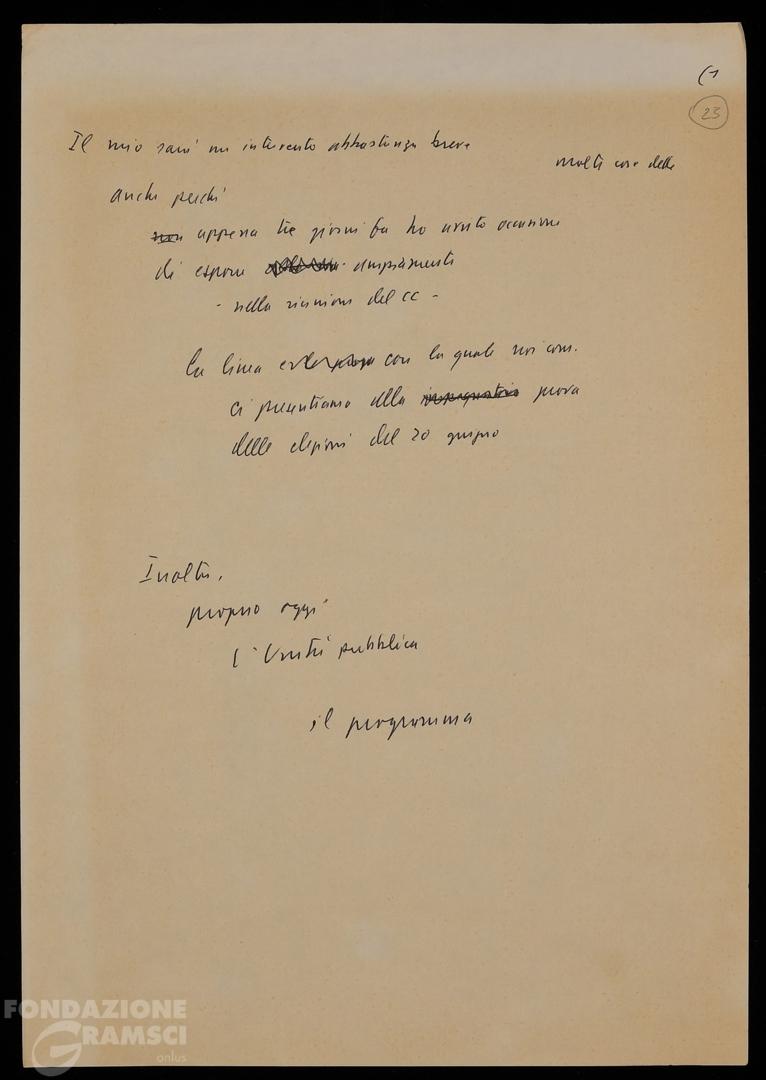 (1
23
Il mio sarà un intervento abbastanza breve
molte cose dette
anche perché
non appena tre giorni fa ho avuto occasione
di esporre ampiamente
- nella riunione del CC -
la linea con la quale noi com.
ci presentiamo alla prova
delle elezioni del 20 giugno
Inoltre,
proprio oggi
l'Unità pubblica
il programma
FONDAZIONE
GRAMSCI
onlus